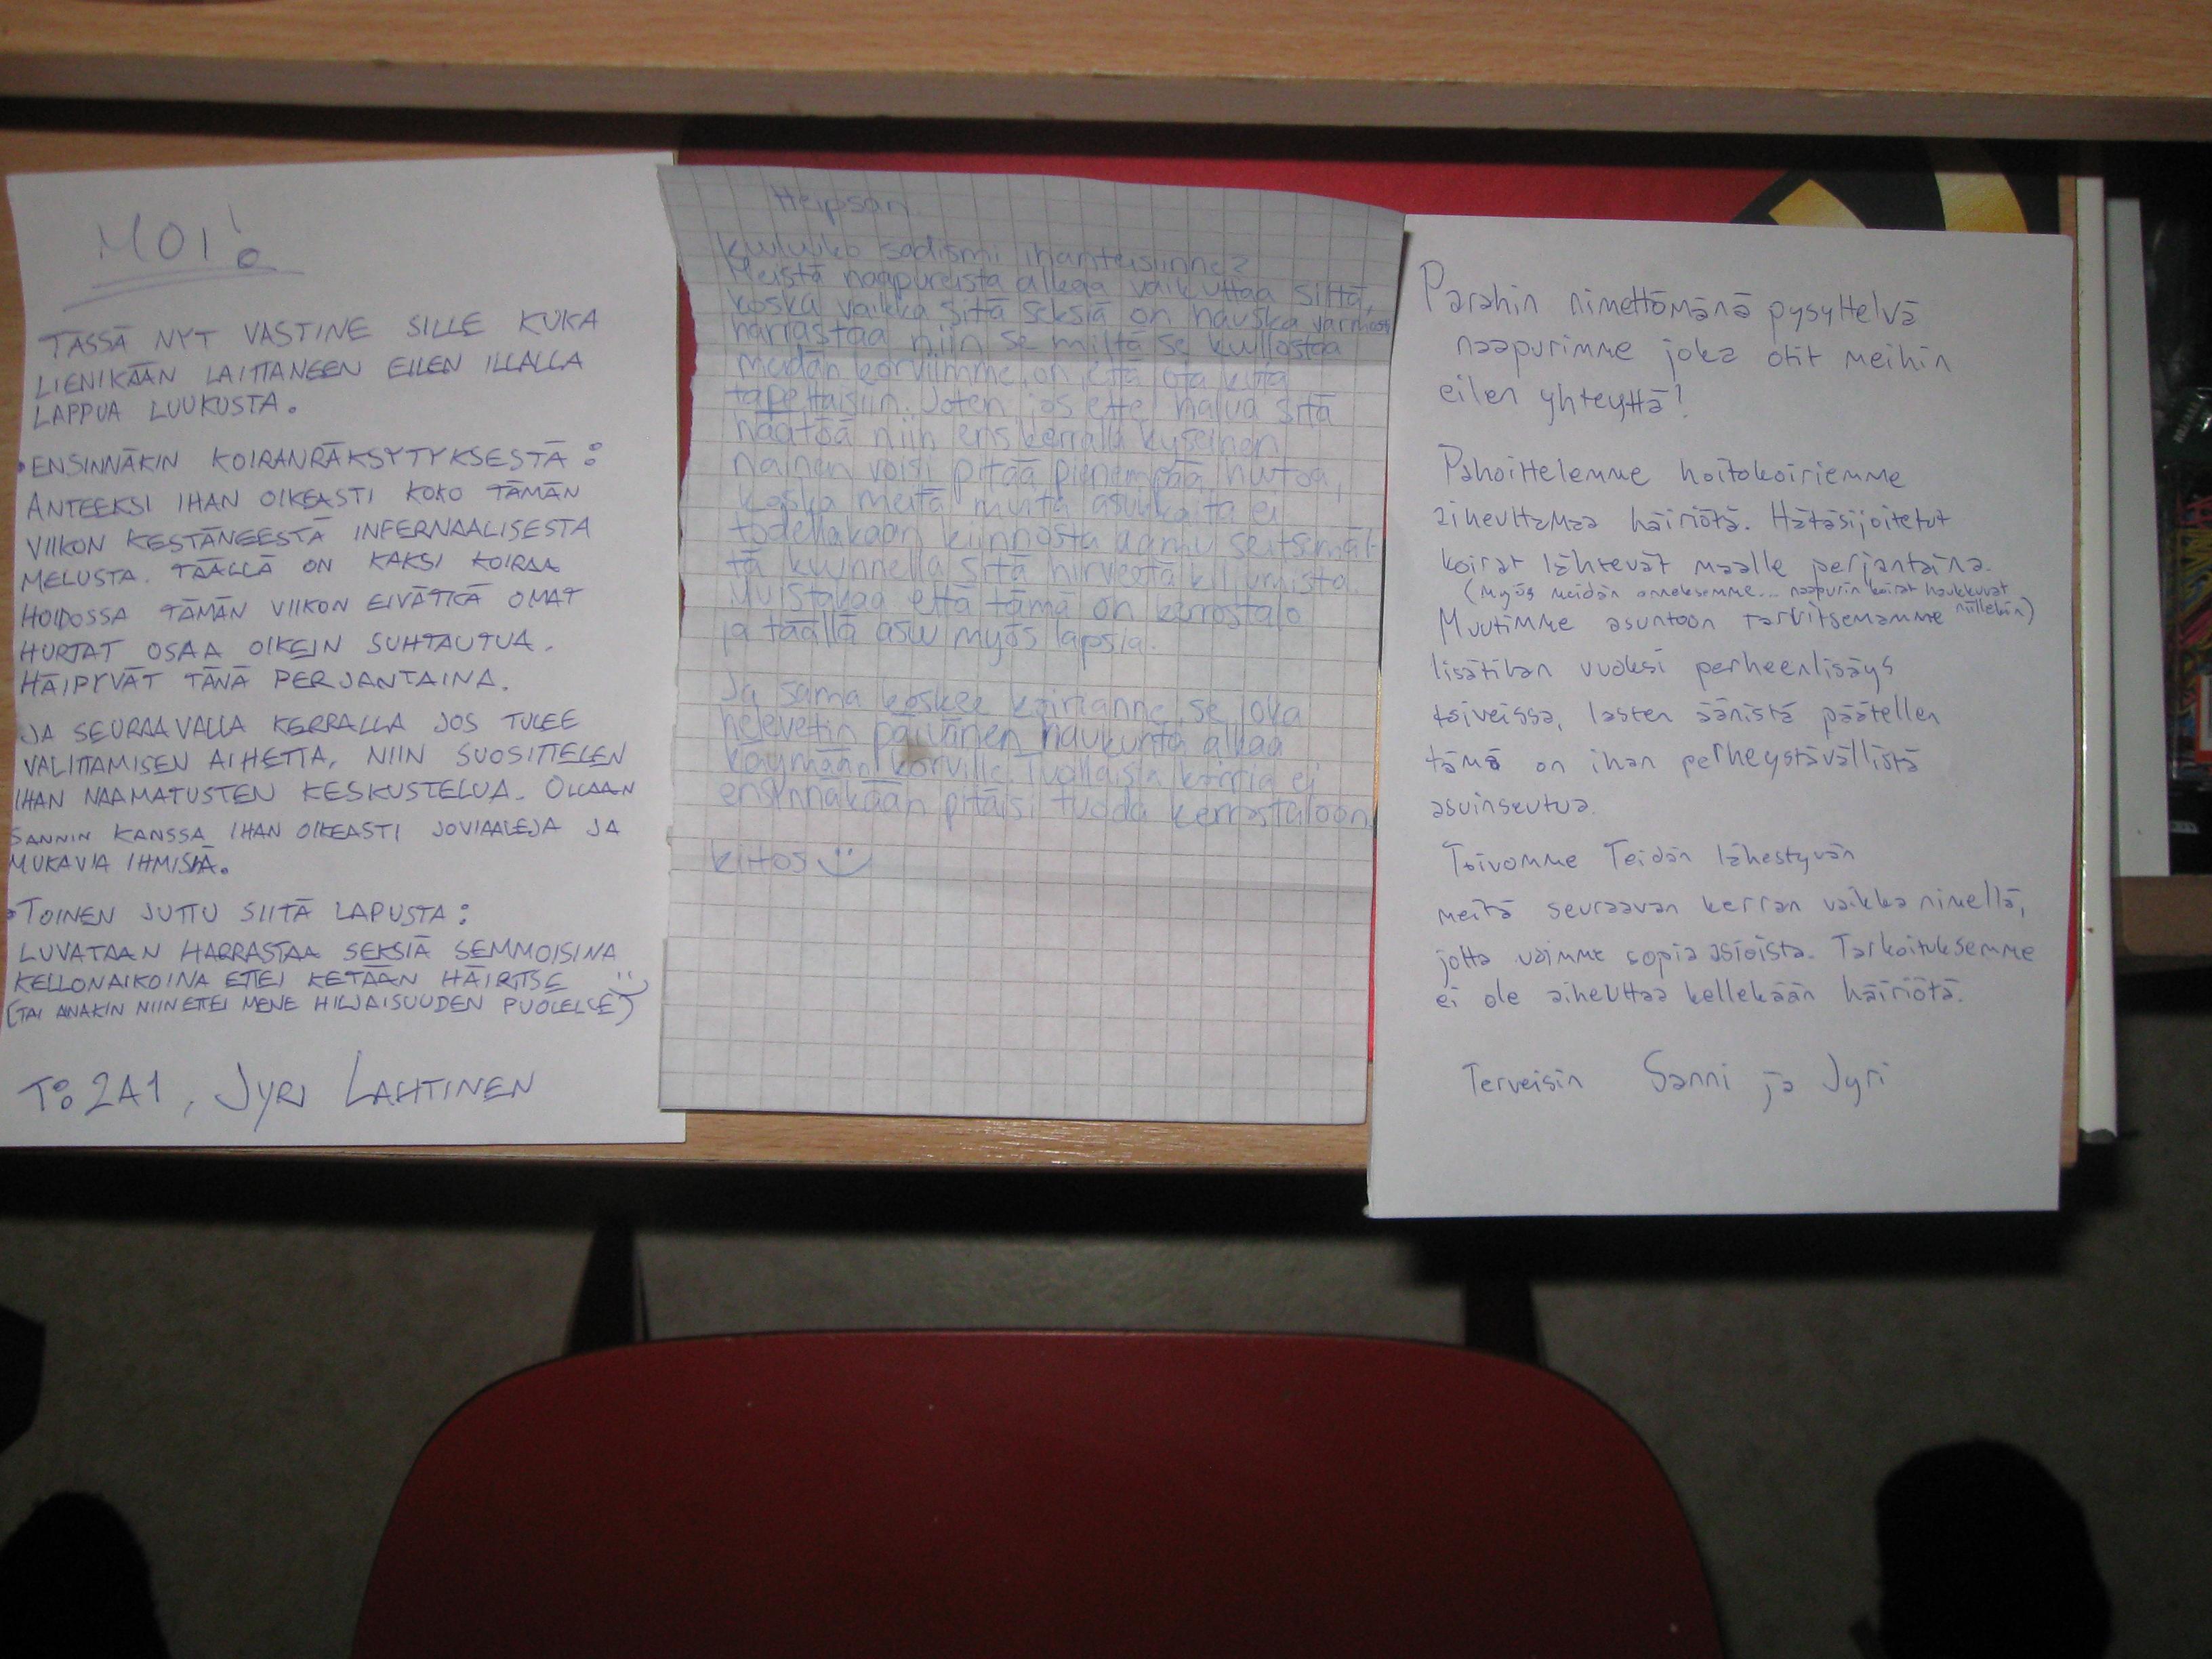 MOI!
TÄSSÄ NYT VASTINE SILLE KUKA
LIENIKÄÄN LAITTANEEN EILEN ILLALLA
LAPPUA LUUKUSTA.
• ENSINNÄKIN KOIRANRÄKSYTYKSESTÄ:
ANTEEKSI IHAN OIKEASTI KOKO TÄMÄN
VIIKON KESTÄNEESTÄ INFERNAALISESTA
MELUSTA. TÄÄLLÄ ON KAKSI KOIRAA
HOIDOSSA TÄMÄN VIIKON EIVÄTKÄ OMAT
HURTAT OSAA OIKEIN SUHTAUTUA.
HÄIPYVÄT TÄNÄ PERJANTAINA.
JA SEURAAVALLA KERRALLA JOS TULEE
VALITTAMISEN AIHETTA, NIIN SUOSITTELEN
IHAN NAAMATUSTEN KESKUSTELUA. OLLAAN
SANNIN KANSSA IHAN OIKEASTI JOVIAALEJA JA
MUKAVIA IHMISIÄ.
• TOINEN JUTTU SIITÄ LAPUSTA:
LUVATAAN HARRASTAA SEKSIÄ SEMMOISINA
KELLONAIKOINA ETTEI KETÄÄN HÄIRITSE :)
(TAI AINAKIN NIIN ETTEI MENE HILJAISUUDEN PUOLELLE)
T: 2A1, JYRI LAHTINEN
Heipsan
Kuuluuko sadismi ihanteisiinne?
Meistä naapureista alkaa vaikuttaa siltä,
koska vaikka sitä seksiä on hauska varmasti
harrastaa niin se miltä se kuulostaa
meidän korviimme on että ota kuta
tapettaisiin. Joten jos ette halua sitä
häätöä niin ens kerralla kyseinen
nainen voisi pitää pienempää hutoa,
koska meitä muita asukkaita ei
todellakaan kiinnosta aamu seitsemäl-
tä kuunnella sitä hirveetä kiljumista.
Muistakaa että tämä on kerrostalo
ja täällä asuu myös lapsia.
Ja sama koskee koirianne, se joka
helevetin päivänen haukunta alkaa
käymään korville. Tuollaisia koiria ei
ensinnäkään pitäisi tuoda kerrostaloon.
kiitos :)
Parahin nimettömänä pysyttelvä
naapurimme joka otit meihin
eilen yhteyttä!
Pahoittelemme hoitokoiriemme
aiheuttamaa häiriötä. Hätäsijoitetut
koirat lähtevät maalle perjantaina.
(Myös meidän onneksemme... naapurin koirat haukkuvat
niillekin)
Muutimme asuntoon tarvitsemamme
lisätilan vuoksi perheenlisäys
toiveissa, lasten äänistä päätellen
tämä on ihan perheystävällistä
asuinseutua.
Toivomme Teidän lähestyvän
meitä seuraavan kerran vaikka nimellä,
jotta voimme sopia asioista. Tarkoituksemme
ei ole aiheuttaa kellekään häiriötä.
Terveisin Sanni ja Jyri